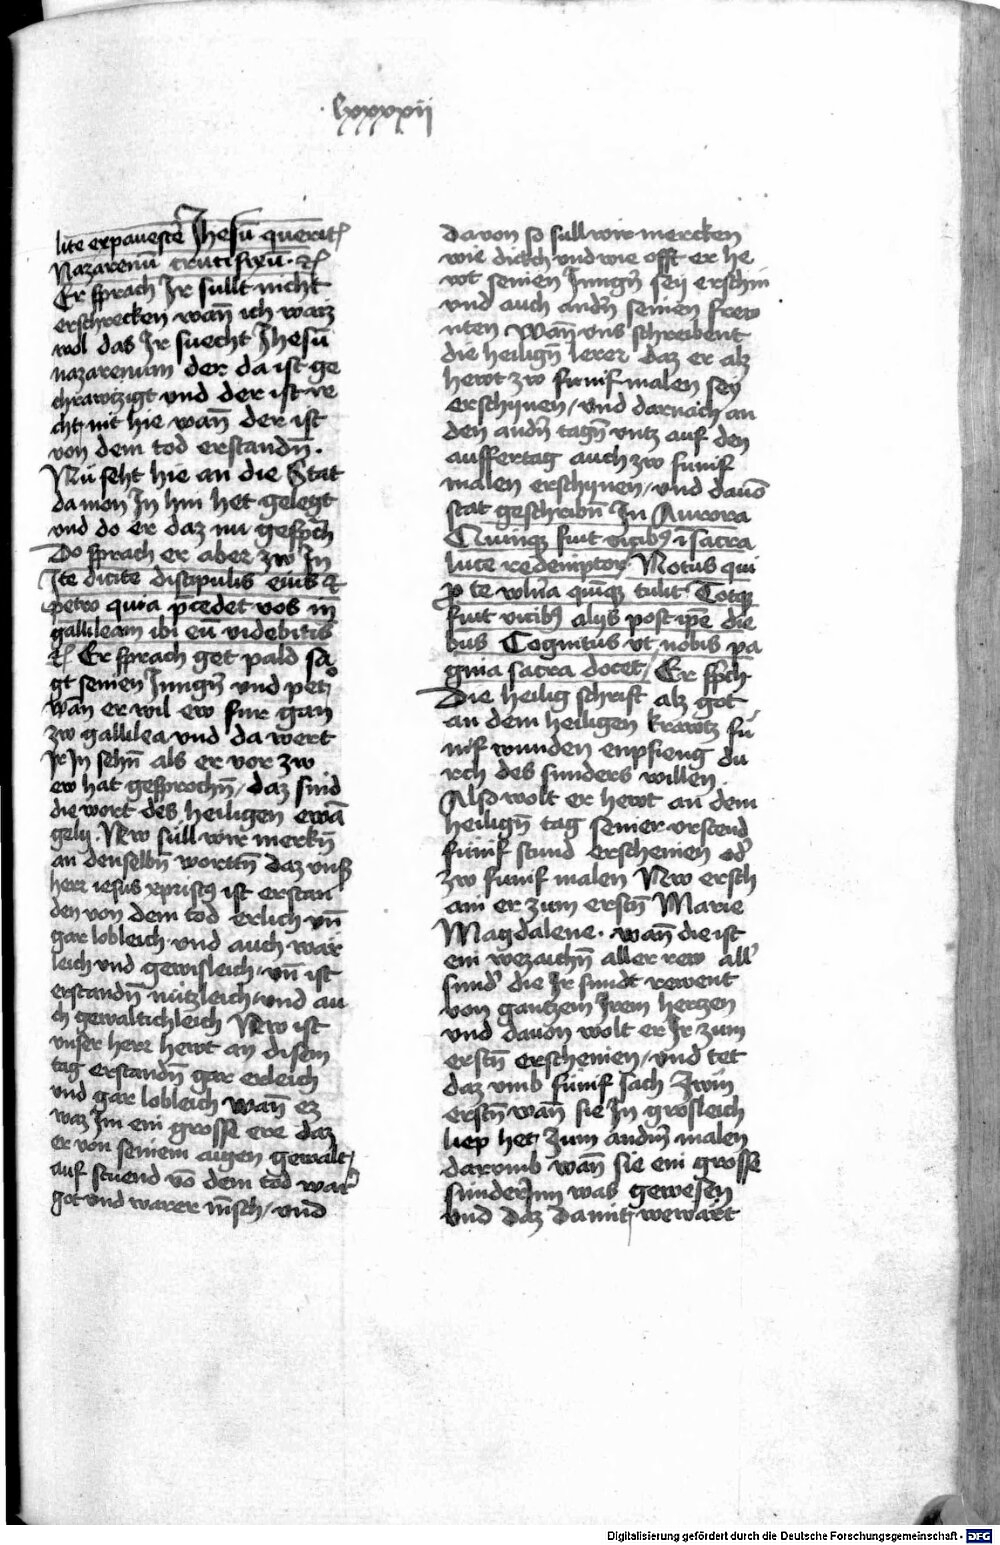 lxxxxii
lite expavescē Jhesū querit~
Nazarenū crucifixū · ꝛc
Er sprach Ir sullt nicht
erschrecken wan̄ ich waiz
wol das Ir suecht Jhesū
nazarenum der da ist ge
chrawtzigt und der ist re
cht nit hie wan̄ der ist
von dem tod erstandn̄ .
Nu seht hie an die Stat
da men In hin het gelegt
und do er daz nu gesp̄ch
Do sprach er aber zw In
Ite dicite discipulis eius ⁊
petro quia p̄cedet vos in
gallileam ibi eū videbitis
ꝛc Er sprach get pald sa
gt seinen Jungn̄ und pet°
wan er wil ew fur gan
zw gallilea und da wert
Ir In sehn̄ als er vor zw
ew hat gesprochn̄ / daz sind
die wort des heiligen ewā
gelij . New sull wir merkn̄
an denselbn̄ wortten̄ daz unß
herr iesus xpristꝰ ist erstan
den von dem tod erlich un̄
gar lobleich und auch war
leich und gewisleich / un̄ ist
erstandn̄ nützleich / und au
ch gewaltichleich New ist
unser herr hewt an disem
tag erstandn̄ gar erleich
und gar lobleich wan̄ ez
waz Im ein grosse ere daz
er von seinem aigen gewalt /
auf stuend vō dem tod war̉
got und warer mn̄sch / und
davon so sull wir mercken
wie dickch und wie offt er he
wt seinen Jungn̄ sey erschin
und auch andn̄ seinen frew
nten Wan̄ uns schreibent
die heilign̄ lerer daz er alz
hewt zw funif malen sey
erschynen / und darnach an
den andn̄ tagn̄ untz auf den
auffertag auch zw funif
malen erschynen / und davō
stat geschribn̄ In Aurora
Quinqꝫ fuit vicibꝰ ī sacra
luce redemptor Motus qui
ꝓ te vuln̄a quinqꝫ tulit Totqꝫ
fuit vicibꝰ alijs post ip̄e die
bus Cognitus ut nobis pa
gina sacra docet / Er sp̄ch
Die heilig schrift alz got
an dem heiligen krawtz fu
nif wunden enpfieng du
rch des sunders willen .
Also wolt er hewt an dem
heilign̄ tag seiner urstend
funif stund erscheinen od̉
zw funif malen New ersch
ain er zum erstn̄ Marie
Magdalene . wan̄ die ist
ein wezaichn̄ aller rew all̉
sund̉ die Ir sundt rewent
von gantzem Irem hertzen
und davon wolt er Ir zum
erstn̄ erscheinen / und tet
daz umb funif sach Zwm
erstn̄ wan̄ sie In grosleich
liep het Zum andn̄ malen
darumb wan̄ sie ein grosse
sunderinn was gewesen
und daz damit wewart
Digitalisierung gefördert durch die Deutsche Forschungsgemeinschaft - DFG